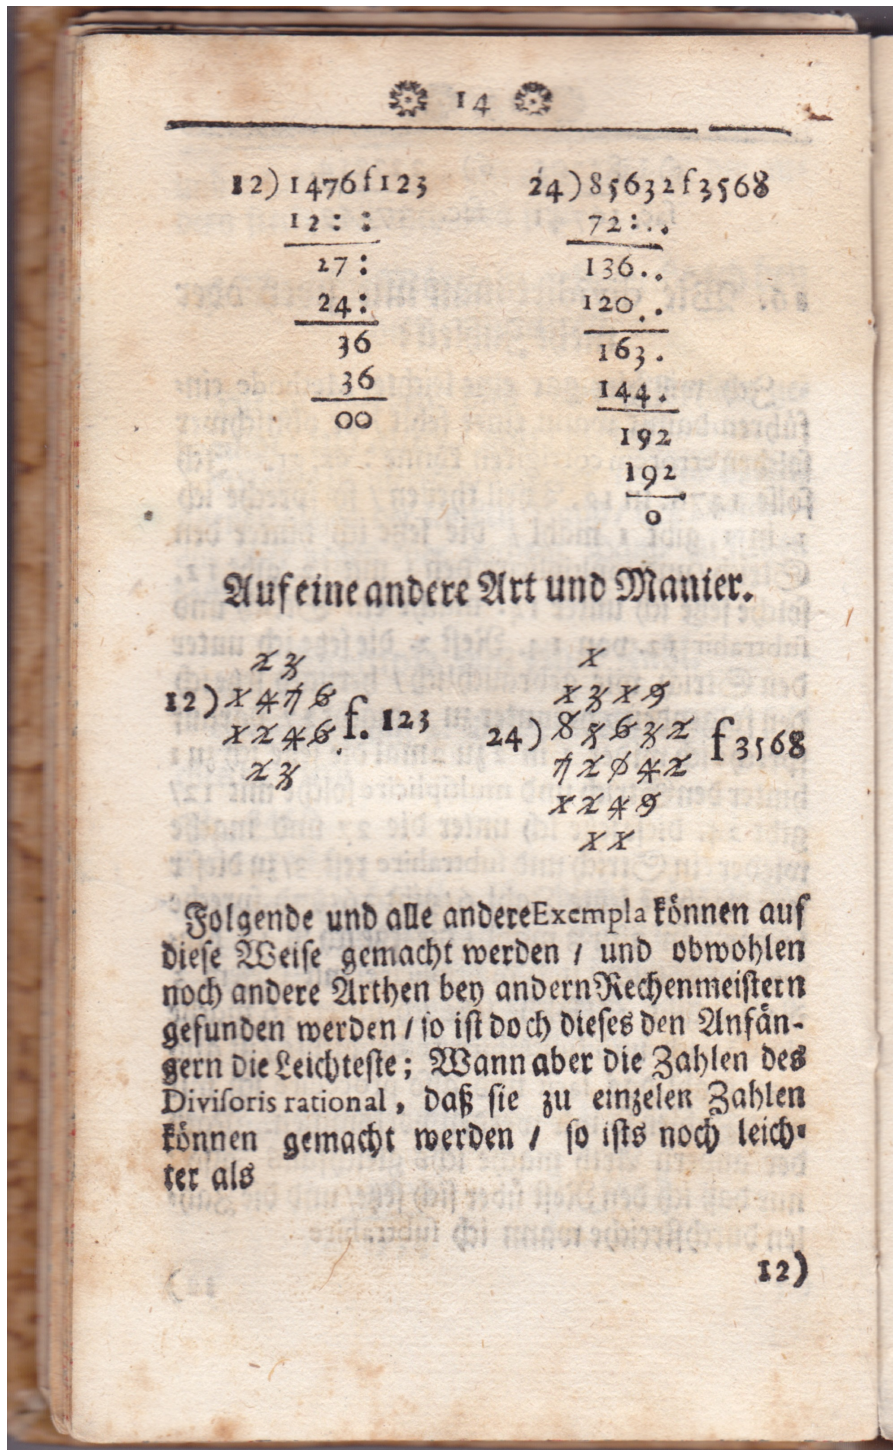 14
12) 1476 f 123
12 : :
27 :
24 :
36
36
00
24) 85632 f 3568
72 : . .
136 . .
120 . .
163 .
144 .
192
192
0
Auf eine andere Art und Manier.
2 3
12) 1 4 7 6 f. 123
1 2 4 6
2 3
1
1 3 1 9
24) 8 5 6 3 2 f 3568
7 2 0 4 2
1 2 4 9
1 1
Folgende und alle andere Exempla können auf
dieſe Weiſe gemacht werden / und obwohlen
noch andere Arthen bey andern Rechenmeiſtern
gefunden werden / ſo iſt doch dieſes den Anfän-
gern die Leichteſte; Wann aber die Zahlen des
Diviſoris rational, daß ſie zu einzelen Zahlen
können gemacht werden / ſo iſts noch leich-
ter als
12)